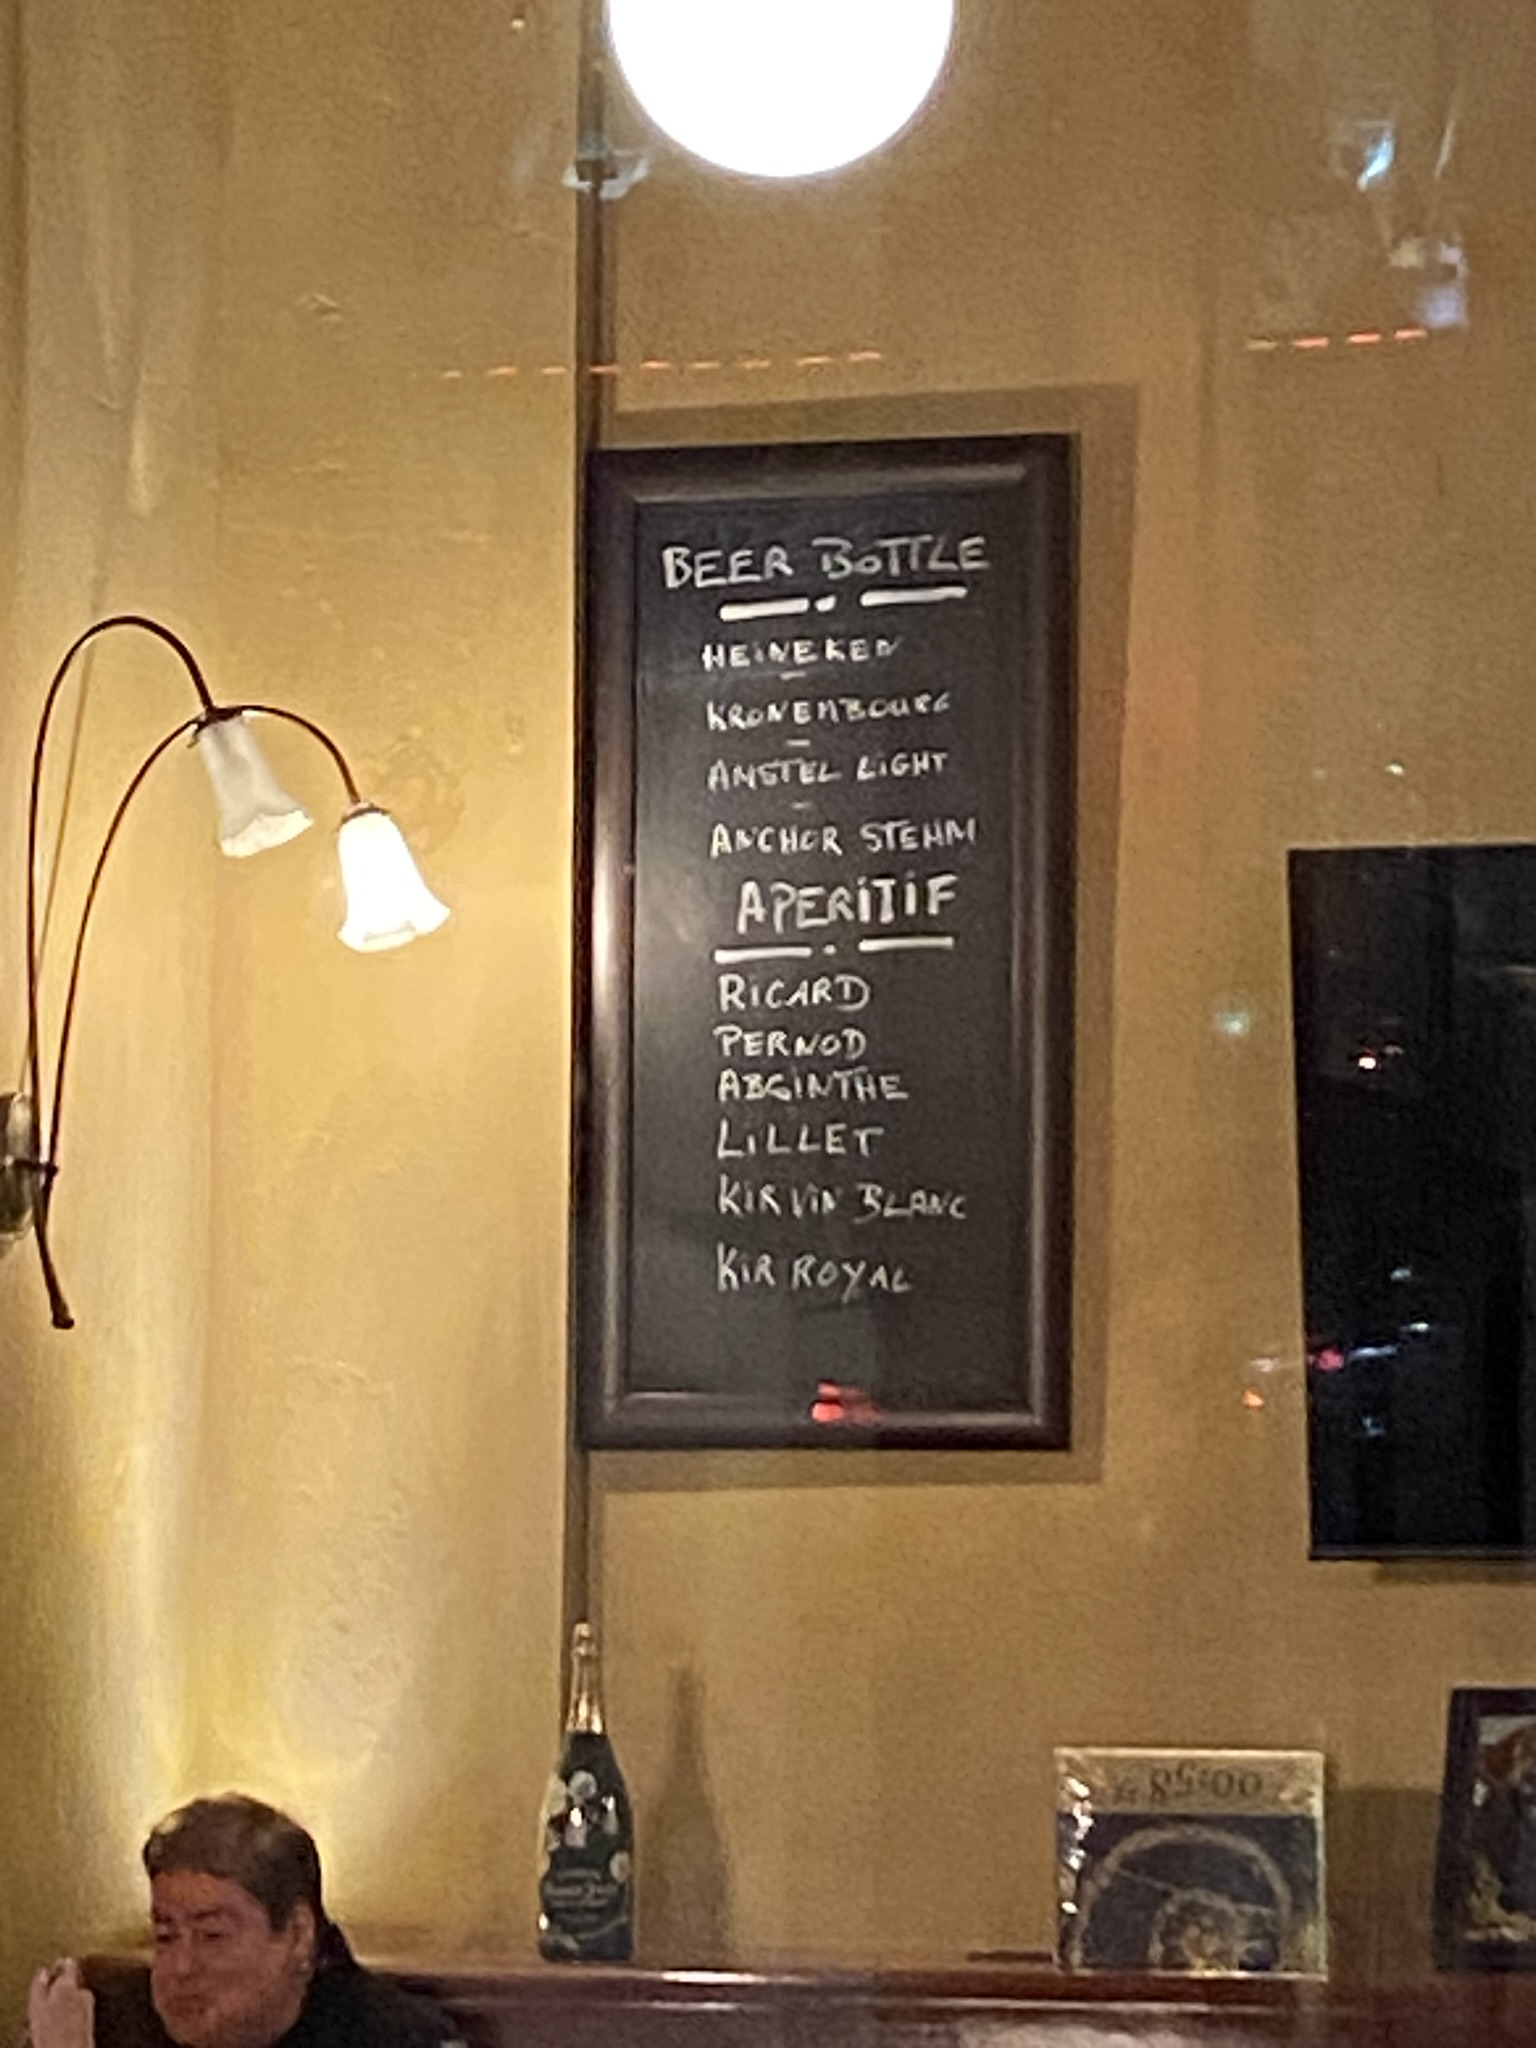 BEER BOTTLE
HEINEKEN
KRONEMBOURG
AMSTEL LIGHT
ANCHOR STEAM
APERITIF
RICARD
PERNOD
ABSINTHE
LILLET
KIR VIN BLANC
KIR ROYAL